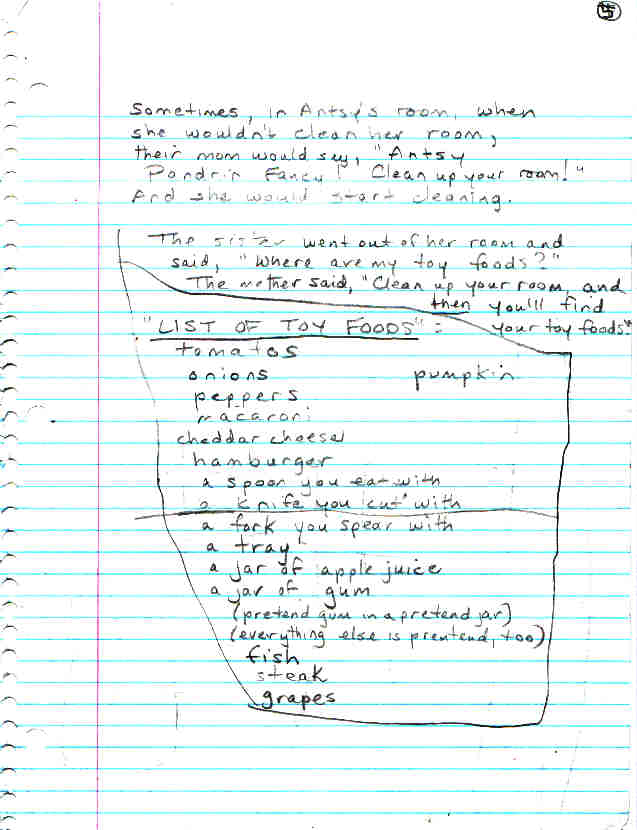 5
Sometimes, in Antsy's room, when
she wouldn't clean her room,
their mom would say, "Antsy
Pandrin Fancy! Clean up your room!"
And she would start cleaning.
The sister went out of her room and
said, "Where are my toy foods?"
The mother said, "Clean up your room, and
then you'll find
your toy foods."
"LIST OF TOY FOODS":
tomatos
onions pumpkin
peppers
macaroni
cheddar cheese
hamburger
a spoon you eat with
a knife you 'cut' with
a fork you spear with
a tray
a jar of apple juice
a jar of gum
(pretend gum in a pretend jar)
(everything else is prentend, too)
fish
steak
grapes